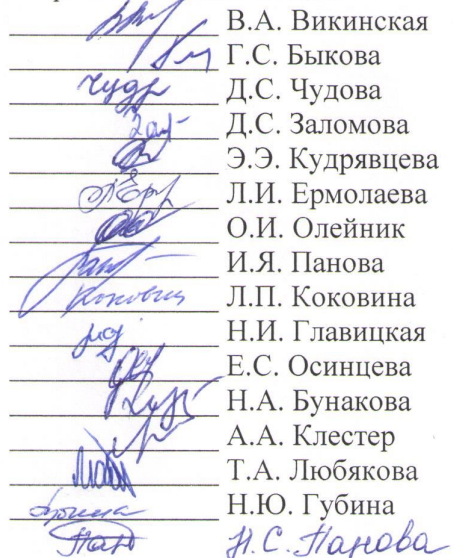 В.А. Викинская
Г.С. Быкова
Чудр Д.С. Чудова
Зал Д.С. Заломова
Э.Э. Кудрявцева
Л.И. Ермолаева
О.И. Олейник
И.Я. Панова
Коковин Л.П. Коковина
Н.И. Главицкая
Е.С. Осинцева
Н.А. Бунакова
А.А. Клестер
Т.А. Любякова
Н.Ю. Губина
Пано Н.С. Панова